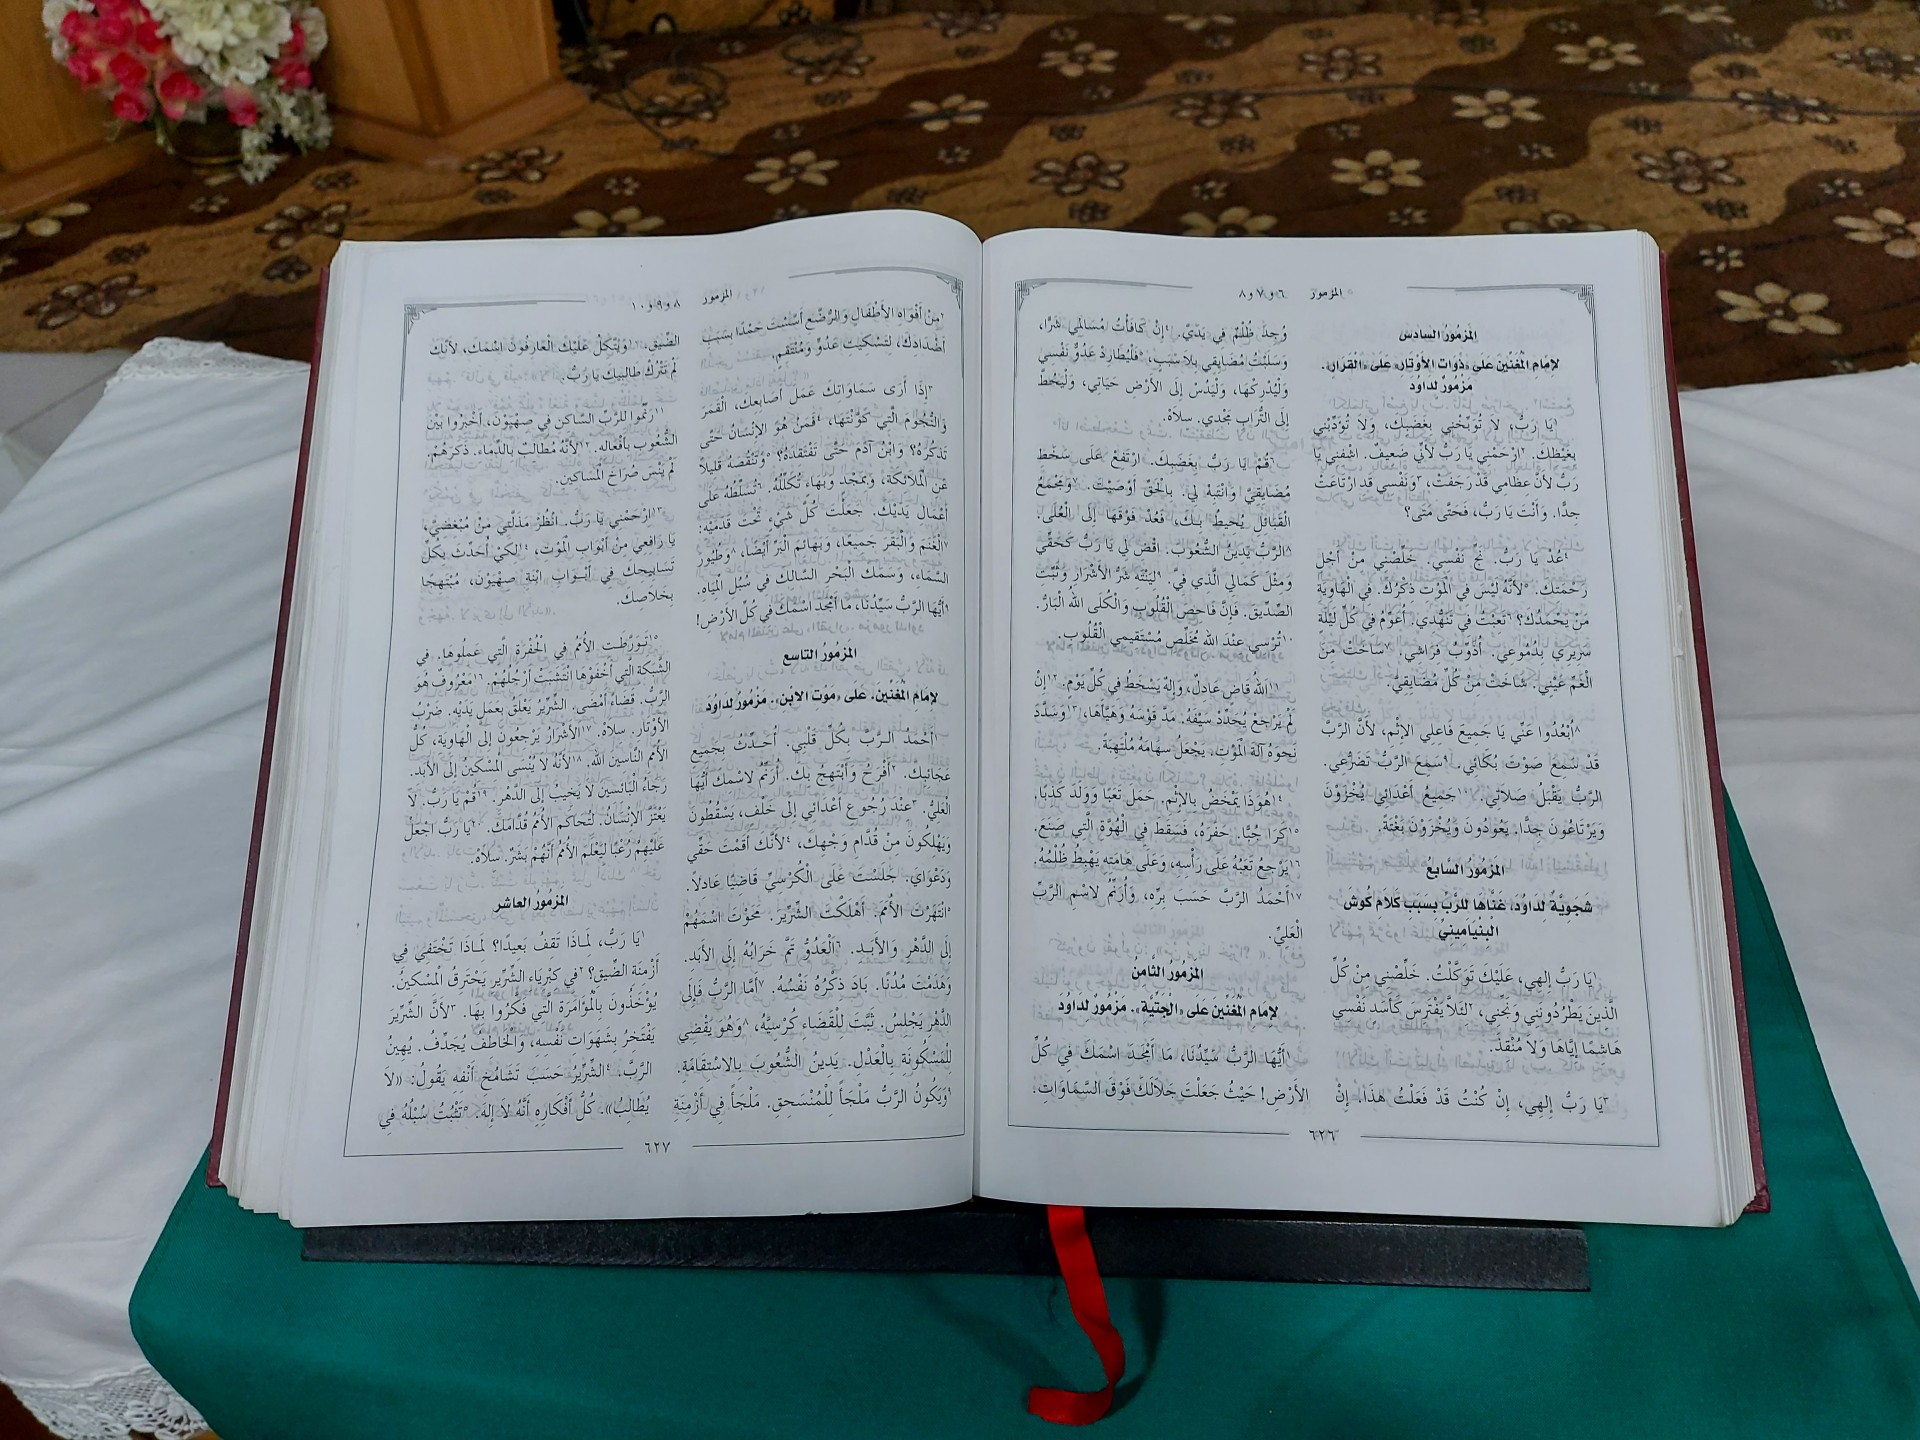 المزمور ٦ و ٧ و ٨
المَزمُورُ السادسُ
لإمامِ المُغَنِّينَ عَلَى «ذَوَاتِ الأَوْتَارِ» عَلَى «القَرَارِ».
مَزمُورٌ لداود
١يَا رَبُّ، لاَ تُوَبِّخْنِي بِغَضَبِكَ، وَلاَ تُؤَدِّبْنِي
بِغَيْظِكَ. ٢ارْحَمْنِي يَا رَبُّ لأَنِّي ضَعِيفٌ. اشْفِنِي يَا
رَبُّ لأَنَّ عِظَامِي قَدْ رَجَفَتْ، ٣وَنَفْسِي قَدِ ارْتَاعَتْ
جِدًّا. وَأَنْتَ يَا رَبُّ، فَحَتَّى مَتَى؟
٤عُدْ يَا رَبُّ. نَجِّ نَفْسِي. خَلِّصْنِي مِنْ أَجْلِ
رَحْمَتِكَ. ٥لأَنَّهُ لَيْسَ فِي الْمَوْتِ ذِكْرُكَ. فِي الْهَاوِيَةِ
مَنْ يَحْمَدُكَ؟ ٦تَعِبْتُ فِي تَنَهُّدِي. أُعَوِّمُ فِي كُلِّ لَيْلَةٍ
سَرِيرِي بِدُمُوعِي. أُذَوِّبُ فِرَاشِي. ٧سَاخَتْ مِنَ
الْغَمِّ عَيْنِي. شَاخَتْ مِنْ كُلِّ مُضَايِقِيَّ.
٨اُبْعُدُوا عَنِّي يَا جَمِيعَ فَاعِلِي الإِثْمِ، لأَنَّ الرَّبَّ
قَدْ سَمِعَ صَوْتَ بُكَائِي. ٩سَمِعَ الرَّبُّ تَضَرُّعِي.
الرَّبُّ يَقْبَلُ صَلاَتِي. ١٠جَمِيعُ أَعْدَائِي يُخْزَوْنَ
وَيَرْتَاعُونَ جِدًّا. يَعُودُونَ وَيُخْزَوْنَ بَغْتَةً.
المَزمُورُ السَّابِعُ
شَجَوِيَّةٌ لِدَاوُدَ، غَنَّاهَا لِلرَّبِّ بِسَبَبِ كَلاَمِ كُوشَ
الْبِنْيَامِينِيِّ
١يَا رَبُّ إِلهِي، عَلَيْكَ تَوَكَّلْتُ. خَلِّصْنِي مِنْ كُلِّ
الَّذِينَ يَطْرُدُونَنِي وَنَجِّنِي، ٢لِئَلاَّ يَفْتَرِسَ كَأَسَدٍ نَفْسِي
هَاشِمًا إِيَّاهَا وَلاَ مُنْقِذَ.
٣يَا رَبُّ إِلهِي، إِنْ كُنْتُ قَدْ فَعَلْتُ هذَا. إِنْ
وُجِدَ ظُلْمٌ فِي يَدَيَّ. ٤إِنْ كَافَأْتُ مُسَالِمِي شَرًّا،
وَسَلَبْتُ مُضَايِقِي بِلاَ سَبَبٍ، ٥فَلْيُطَارِدْ عَدُوٌّ نَفْسِي
وَلْيُدْرِكْهَا، وَلْيَدُسْ إِلَى الأَرْضِ حَيَاتِي، وَلْيَحُطَّ
إِلَى التُّرَابِ مَجْدِي. سِلاَهْ.
٦قُمْ يَا رَبُّ بِغَضَبِكَ. ارْتَفِعْ عَلَى سَخَطِ
مُضَايِقِيَّ وَانْتَبِهْ لِي. بِالْحَقِّ أَوْصَيْتَ. ٧وَمَجْمَعُ
الْقَبَائِلِ يُحِيطُ بِكَ، فَعُدْ فَوْقَهَا إِلَى الْعُلَى.
٨الرَّبُّ يَدِينُ الشُّعُوبَ. اقْضِ لِي يَا رَبُّ كَحَقِّي
وَمِثْلَ كَمَالِي الَّذِي فِيَّ. ٩لِيَنْتَهِ شَرُّ الأَشْرَارِ وَثَبِّتِ
الصِّدِّيقَ. فَإِنَّ فَاحِصَ الْقُلُوبِ وَالْكُلَى اللهُ الْبَارُّ.
١٠تُرْسِي عِنْدَ اللهِ مُخَلِّصِ مُسْتَقِيمِي الْقُلُوبِ.
١١اَللهُ قَاضٍ عَادِلٌ، وَإِلهٌ يَسْخَطُ فِي كُلِّ يَوْمٍ. ١٢إِنْ
لَمْ يَرْجِعْ يُحَدِّدْ سَيْفَهُ. مَدَّ قَوْسَهُ وَهَيَّأَهَا، ١٣وَسَدَّدَ
نَحْوَهُ آلَةَ الْمَوْتِ. يَجْعَلُ سِهَامَهُ مُلْتَهِبَةً.
١٤هُوَذَا يَمْخَضُ بِالإِثْمِ. حَمَلَ تَعَبًا وَوَلَدَ كَذِبًا.
١٥كَرَا جُبًّا. حَفَرَهُ، فَسَقَطَ فِي الْهُوَّةِ الَّتِي صَنَعَ.
١٦يَرْجِعُ تَعَبُهُ عَلَى رَأْسِهِ، وَعَلَى هَامَتِهِ يَهْبِطُ ظُلْمُهُ.
١٧أَحْمَدُ الرَّبَّ حَسَبَ بِرِّهِ، وَأُرَنِّمُ لاِسْمِ الرَّبِّ
الْعَلِيِّ.
المَزمُورُ الثَّامِنُ
لإِمَامِ الْمُغَنِّينَ عَلَى «الْجَتِّيَّةِ». مَزْمُورٌ لِدَاوُدَ
١أَيُّهَا الرَّبُّ سَيِّدُنَا، مَا أَمْجَدَ اسْمَكَ فِي كُلِّ
الأَرْضِ! حَيْثُ جَعَلْتَ جَلاَلَكَ فَوْقَ السَّمَاوَاتِ.
٦٢٦
المزمور ٨ و ٩ و ١٠
٢مِنْ أَفْوَاهِ الأَطْفَالِ وَالرُّضَّعِ أَسَّسْتَ حَمْدًا بِسَبَبِ
أَضْدَادِكَ، لِتَسْكِيتِ عَدُوٍّ وَمُنْتَقِمٍ.
٣إِذَا أَرَى سَمَاوَاتِكَ عَمَلَ أَصَابِعِكَ، الْقَمَرَ
وَالنُّجُومَ الَّتِي كَوَّنْتَهَا، ٤فَمَنْ هُوَ الإِنْسَانُ حَتَّى
تَذْكُرَهُ؟ وَابْنُ آدَمَ حَتَّى تَفْتَقِدَهُ؟ ٥وَتَنْقُصَهُ قَلِيلاً
عَنِ الْمَلاَئِكَةِ، وَبِمَجْدٍ وَبَهَاءٍ تُكَلِّلُهُ. ٦تُسَلِّطُهُ عَلَى
أَعْمَالِ يَدَيْكَ. جَعَلْتَ كُلَّ شَيْءٍ تَحْتَ قَدَمَيْهِ:
٧الْغَنَمَ وَالْبَقَرَ جَمِيعًا، وَبَهَائِمَ الْبَرِّ أَيْضًا، ٨وَطُيُورَ
السَّمَاءِ، وَسَمَكَ الْبَحْرِ السَّالِكَ فِي سُبُلِ الْمِيَاهِ.
٩أَيُّهَا الرَّبُّ سَيِّدُنَا، مَا أَمْجَدَ اسْمَكَ فِي كُلِّ الأَرْضِ!
المَزمُورُ التاسعُ
لإِمَامِ الْمُغَنِّينَ. عَلَى «مَوْتِ الابْنِ». مَزْمُورٌ لِدَاوُدَ
١أَحْمَدُ الرَّبَّ بِكُلِّ قَلْبِي. أُحَدِّثُ بِجَمِيعِ
عَجَائِبِكَ. ٢أَفْرَحُ وَأَبْتَهِجُ بِكَ. أُرَنِّمُ لاسْمِكَ أَيُّهَا
الْعَلِيُّ. ٣عِنْدَ رُجُوعِ أَعْدَائِي إِلَى خَلْفٍ، يَسْقُطُونَ
وَيَهْلِكُونَ مِنْ قُدَّامِ وَجْهِكَ، ٤لأَنَّكَ أَقَمْتَ حَقِّي
وَدَعْوَايَ. جَلَسْتَ عَلَى الْكُرْسِيِّ قَاضِيًا عَادِلاً.
٥انْتَهَرْتَ الأُمَمَ. أَهْلَكْتَ الشِّرِّيرَ. مَحَوْتَ اسْمَهُمْ
إِلَى الدَّهْرِ وَالأَبَدِ. ٦اَلْعَدُوُّ تَمَّ خَرَابُهُ إِلَى الأَبَدِ.
وَهَدَمْتَ مُدُنًا. بَادَ ذِكْرُهُ نَفْسُهُ. ٧أَمَّا الرَّبُّ فَإِلَى
الدَّهْرِ يَجْلِسُ. ثَبَّتَ لِلْقَضَاءِ كُرْسِيَّهُ، ٨وَهُوَ يَقْضِي
لِلْمَسْكُونَةِ بِالْعَدْلِ. يَدِينُ الشُّعُوبَ بِالاسْتِقَامَةِ.
٩وَيَكُونُ الرَّبُّ مَلْجَأً لِلْمُنْسَحِقِ. مَلْجَأً فِي أَزْمِنَةِ
الضِّيقِ. ١٠وَيَتَّكِلُ عَلَيْكَ الْعَارِفُونَ اسْمَكَ، لأَنَّكَ
لَمْ تَتْرُكْ طَالِبِيكَ يَا رَبُّ.
١١رَنِّمُوا لِلرَّبِّ السَّاكِنِ فِي صِهْيَوْنَ، أَخْبِرُوا بَيْنَ
الشُّعُوبِ بِأَفْعَالِهِ. ١٢لأَنَّهُ مُطَالِبٌ بِالدِّمَاءِ. ذَكَرَهُمْ.
لَمْ يَنْسَ صُرَاخَ الْمَسَاكِينِ.
١٣اِرْحَمْنِي يَا رَبُّ. انْظُرْ مَذَلَّتِي مِنْ مُبْغِضِيَّ،
يَا رَافِعِي مِنْ أَبْوَابِ الْمَوْتِ، ١٤لِكَيْ أُحَدِّثَ بِكُلِّ
تَسَابِيحِكَ فِي أَبْوَابِ ابْنَةِ صِهْيَوْنَ، مُبْتَهِجًا
بِخَلاَصِكَ.
١٥تَوَرَّطَتِ الأُمَمُ فِي الْحُفْرَةِ الَّتِي عَمِلُوهَا. فِي
الشَّبَكَةِ الَّتِي أَخْفَوْهَا انْتَشَبَتْ أَرْجُلُهُمْ. ١٦مَعْرُوفٌ هُوَ
الرَّبُّ. قَضَاءً أَمْضَى. الشِّرِّيرُ يَعْلَقُ بِعَمَلِ يَدَيْهِ. ضَرْبُ
الأَوْتَارِ. سِلاَهْ. ١٧اَلأَشْرَارُ يَرْجِعُونَ إِلَى الْهَاوِيَةِ، كُلُّ
الأُمَمِ النَّاسِينَ اللهَ. ١٨لأَنَّهُ لاَ يُنْسَى الْمِسْكِينُ إِلَى الأَبَدِ.
رَجَاءُ الْبَائِسِينَ لاَ يَخِيبُ إِلَى الدَّهْرِ. ١٩قُمْ يَا رَبُّ. لاَ
يَعْتَزَّ الإِنْسَانُ. لِتُحَاكَمِ الأُمَمُ قُدَّامَكَ. ٢٠يَا رَبُّ اجْعَلْ
عَلَيْهِمْ رُعْبًا لِيَعْلَمَ الأُمَمُ أَنَّهُمْ بَشَرٌ. سِلاَهْ.
المَزمُورُ العاشر
١يَا رَبُّ، لِمَاذَا تَقِفُ بَعِيدًا؟ لِمَاذَا تَخْتَفِي فِي
أَزْمِنَةِ الضِّيقِ؟ ٢فِي كِبْرِيَاءِ الشِّرِّيرِ يَحْتَرِقُ الْمِسْكِينُ.
يُؤْخَذُونَ بِالْمُؤَامَرَةِ الَّتِي فَكَّرُوا بِهَا. ٣لأَنَّ الشِّرِّيرَ
يَفْتَخِرُ بِشَهَوَاتِ نَفْسِهِ، وَالْخَاطِفُ يُجَدِّفُ. يُهِينُ
الرَّبَّ. ٤الشِّرِّيرُ حَسَبَ تَشَامُخِ أَنْفِهِ يَقُولُ: «لاَ
يُطَالِبُ». كُلُّ أَفْكَارِهِ أَنَّهُ لاَ إِلهَ. ٥تَثْبُتُ سُبْلُهُ فِي
٦٢٧